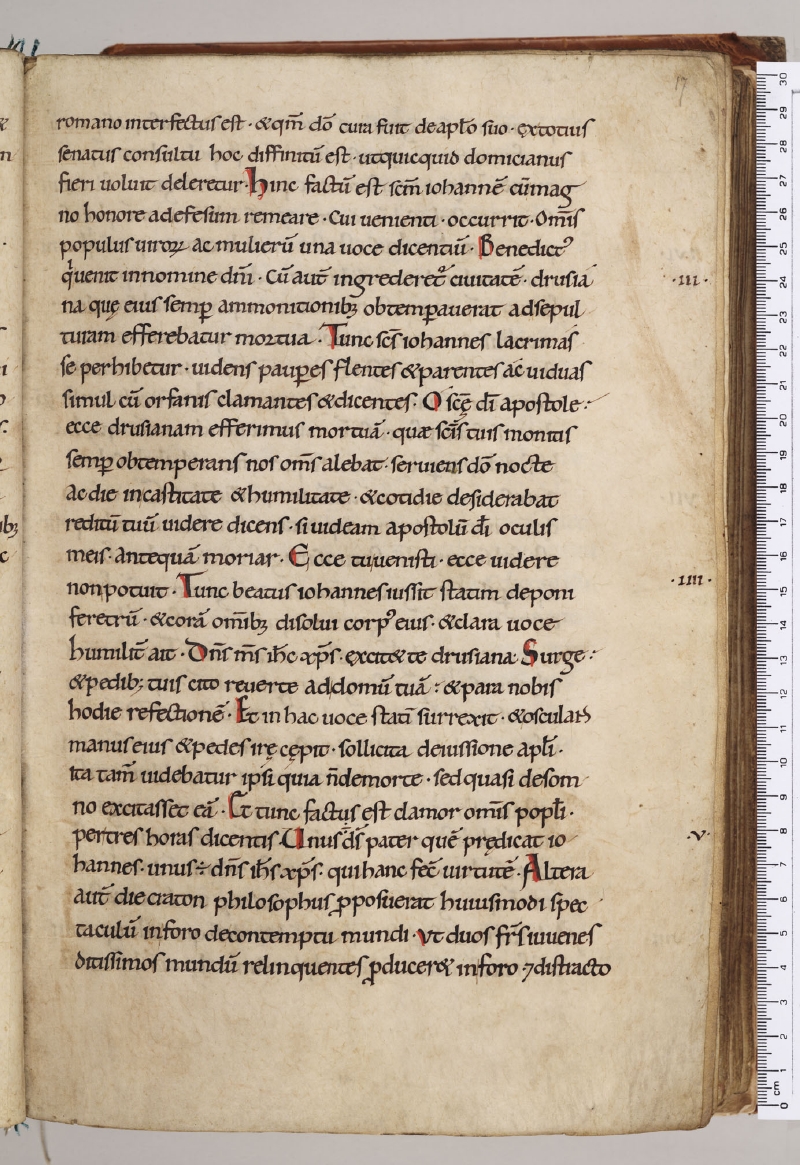 17
romano interfectus est · &qm̄ dō cura fuit de aplō suo · extotius
senatus consultu hoc diffinitū est · utquicquid domicianus
fieri uoluit deleretur · Hinc factū est scm̄ iohannē cūmag
no honore adefesum remeare · Cui uenienti · occurrit · Om̄is
populus uiroꝝ ac mulierū una uoce dicentiū · Benedictꝰ
q̇uenit innomine dn̄i · Cū aut̄ ingrederet᷑ ciuitatē · drusia
na quę eius semꝑ ammonitionibꝫ obtemꝑauerat adsepul
turam efferebatur mortua · Tunc scs̄ iohannes lacrimas
se perhibetur · uidens pauꝑes flentes &parentes ac uiduas
simul cū orfanis clamantes &dicentes · O scę̄ dī apostole ·
ecce drusianam efferimus mortuā · quæ scīs tuis monitis
semꝑ obtemperans nos om̄s alebat · seruiens dō nocte
ac die incastitate &humilitate · &cotidie desiderabat
reditū tuū uidere dicens · si uideam apostolū dī oculis
meis · antequā moriar · Ecce tu uenisti · ecce uidere
nonpotuit · Tunc beatus iohannes iussit statim deponi
feretrū · &corā om̄ibꝫ disolui corpꝰ eius · &clara uoce
humilit̄ ait · Dn̄s m̄s ih̄c xp̄s · excit&te drusiana Surge ·
&pedibꝫ tuis cito reuerte addomū tuā : &para nobis
hodie refectionē · Et in hac uoce statī surrexit · &oscular̄
manus eius &pedes ire cępit · sollicita deiussione aplī ·
ita tam̄ uidebatur ipsi quia n̄demorte · sed quasi desom
no excitasset eā · Et tunc factus est clamor om̄is popl̄i ·
pertres horas dicentis · Unus dī pater quē prędicat io
hannes · unus ÷ dn̄s ih̄s xp̄s · qui hanc fec̄ uirtutē · Altera
aut̄ die craton philosophus ꝓposuerat huiusmodi spec
taculū inforo decontemptu mundi · Vt duos fr̄s iuuenes
ditissimos mundū relinquentes ꝓducer& inforo ⁊distracto
· III ·
· IIII ·
· V ·